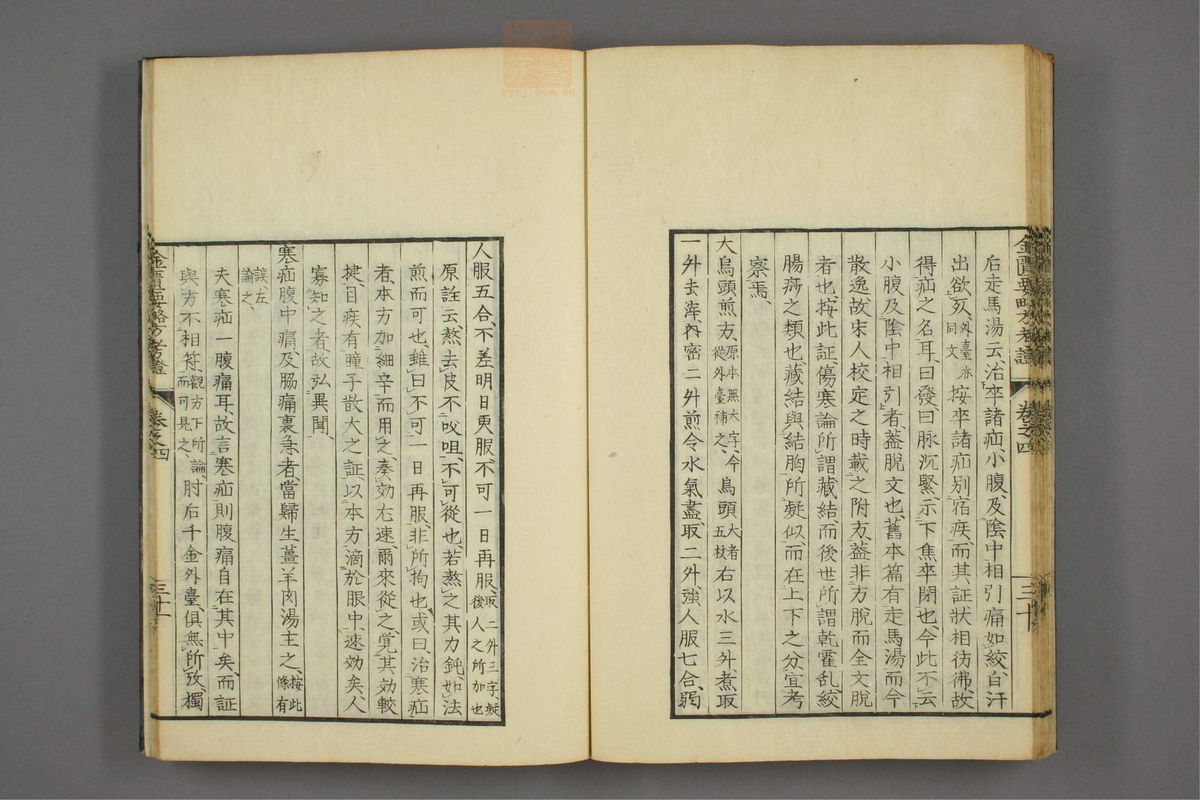 后走馬湯云、治卒諸疝、小腹、及陰中相引痛如絞、自汗
出欲死、外臺亦同文 按卒諸疝別宿疾、而其証狀相彷彿、故
得疝之名耳、曰發、曰脉沉緊、示下焦卒閉也、今此不云
小腹及陰中相引者、蓋脫文也、舊本篇有走馬湯、而今
散逸、故宋人校定之時、載之附方、蓋非方脫而全文脫
者也、按此証傷寒論所謂藏結、而後世所謂乾霍乱絞
腸痧之類也、藏結與結胸所疑似、而在上下之分、宜考
察焉、
大烏頭煎方、原本無大字、今從外臺補之、 烏頭大者五枚 右以水三升、煮取
一升去滓、內密二升煎令水氣盡、取二升、強人服七合、弱
人服五合、不差明日更服、不可一日再服、取二升三字、疑後人之所加也
原詮云、熬、去皮不㕮咀、不可從也、若熬之其力鈍、如法
煎而可也、雖曰不可一日再服、非所拘也、或曰、治寒疝
者、本方加細辛而用之、奏効尤速、爾來從之、覚其効較
揵、目疾有瞳子散大之証、以本方滴於眼中、速効矣、人
寡知之者、故弘異聞、
寒疝腹中痛、及脇痛裏急者、當歸生薑羊肉湯主之、按此條有
誤、左論之、
夫寒疝一腹痛耳、故言寒疝則腹痛自在其中矣、而証
與方不相符、觀方下所論、而可見之、肘后千金外臺、俱無所攷、獨
金匱要略方考證 卷之四 三十
金匱要略方考證 卷之四 三十一
zybj.com.cn